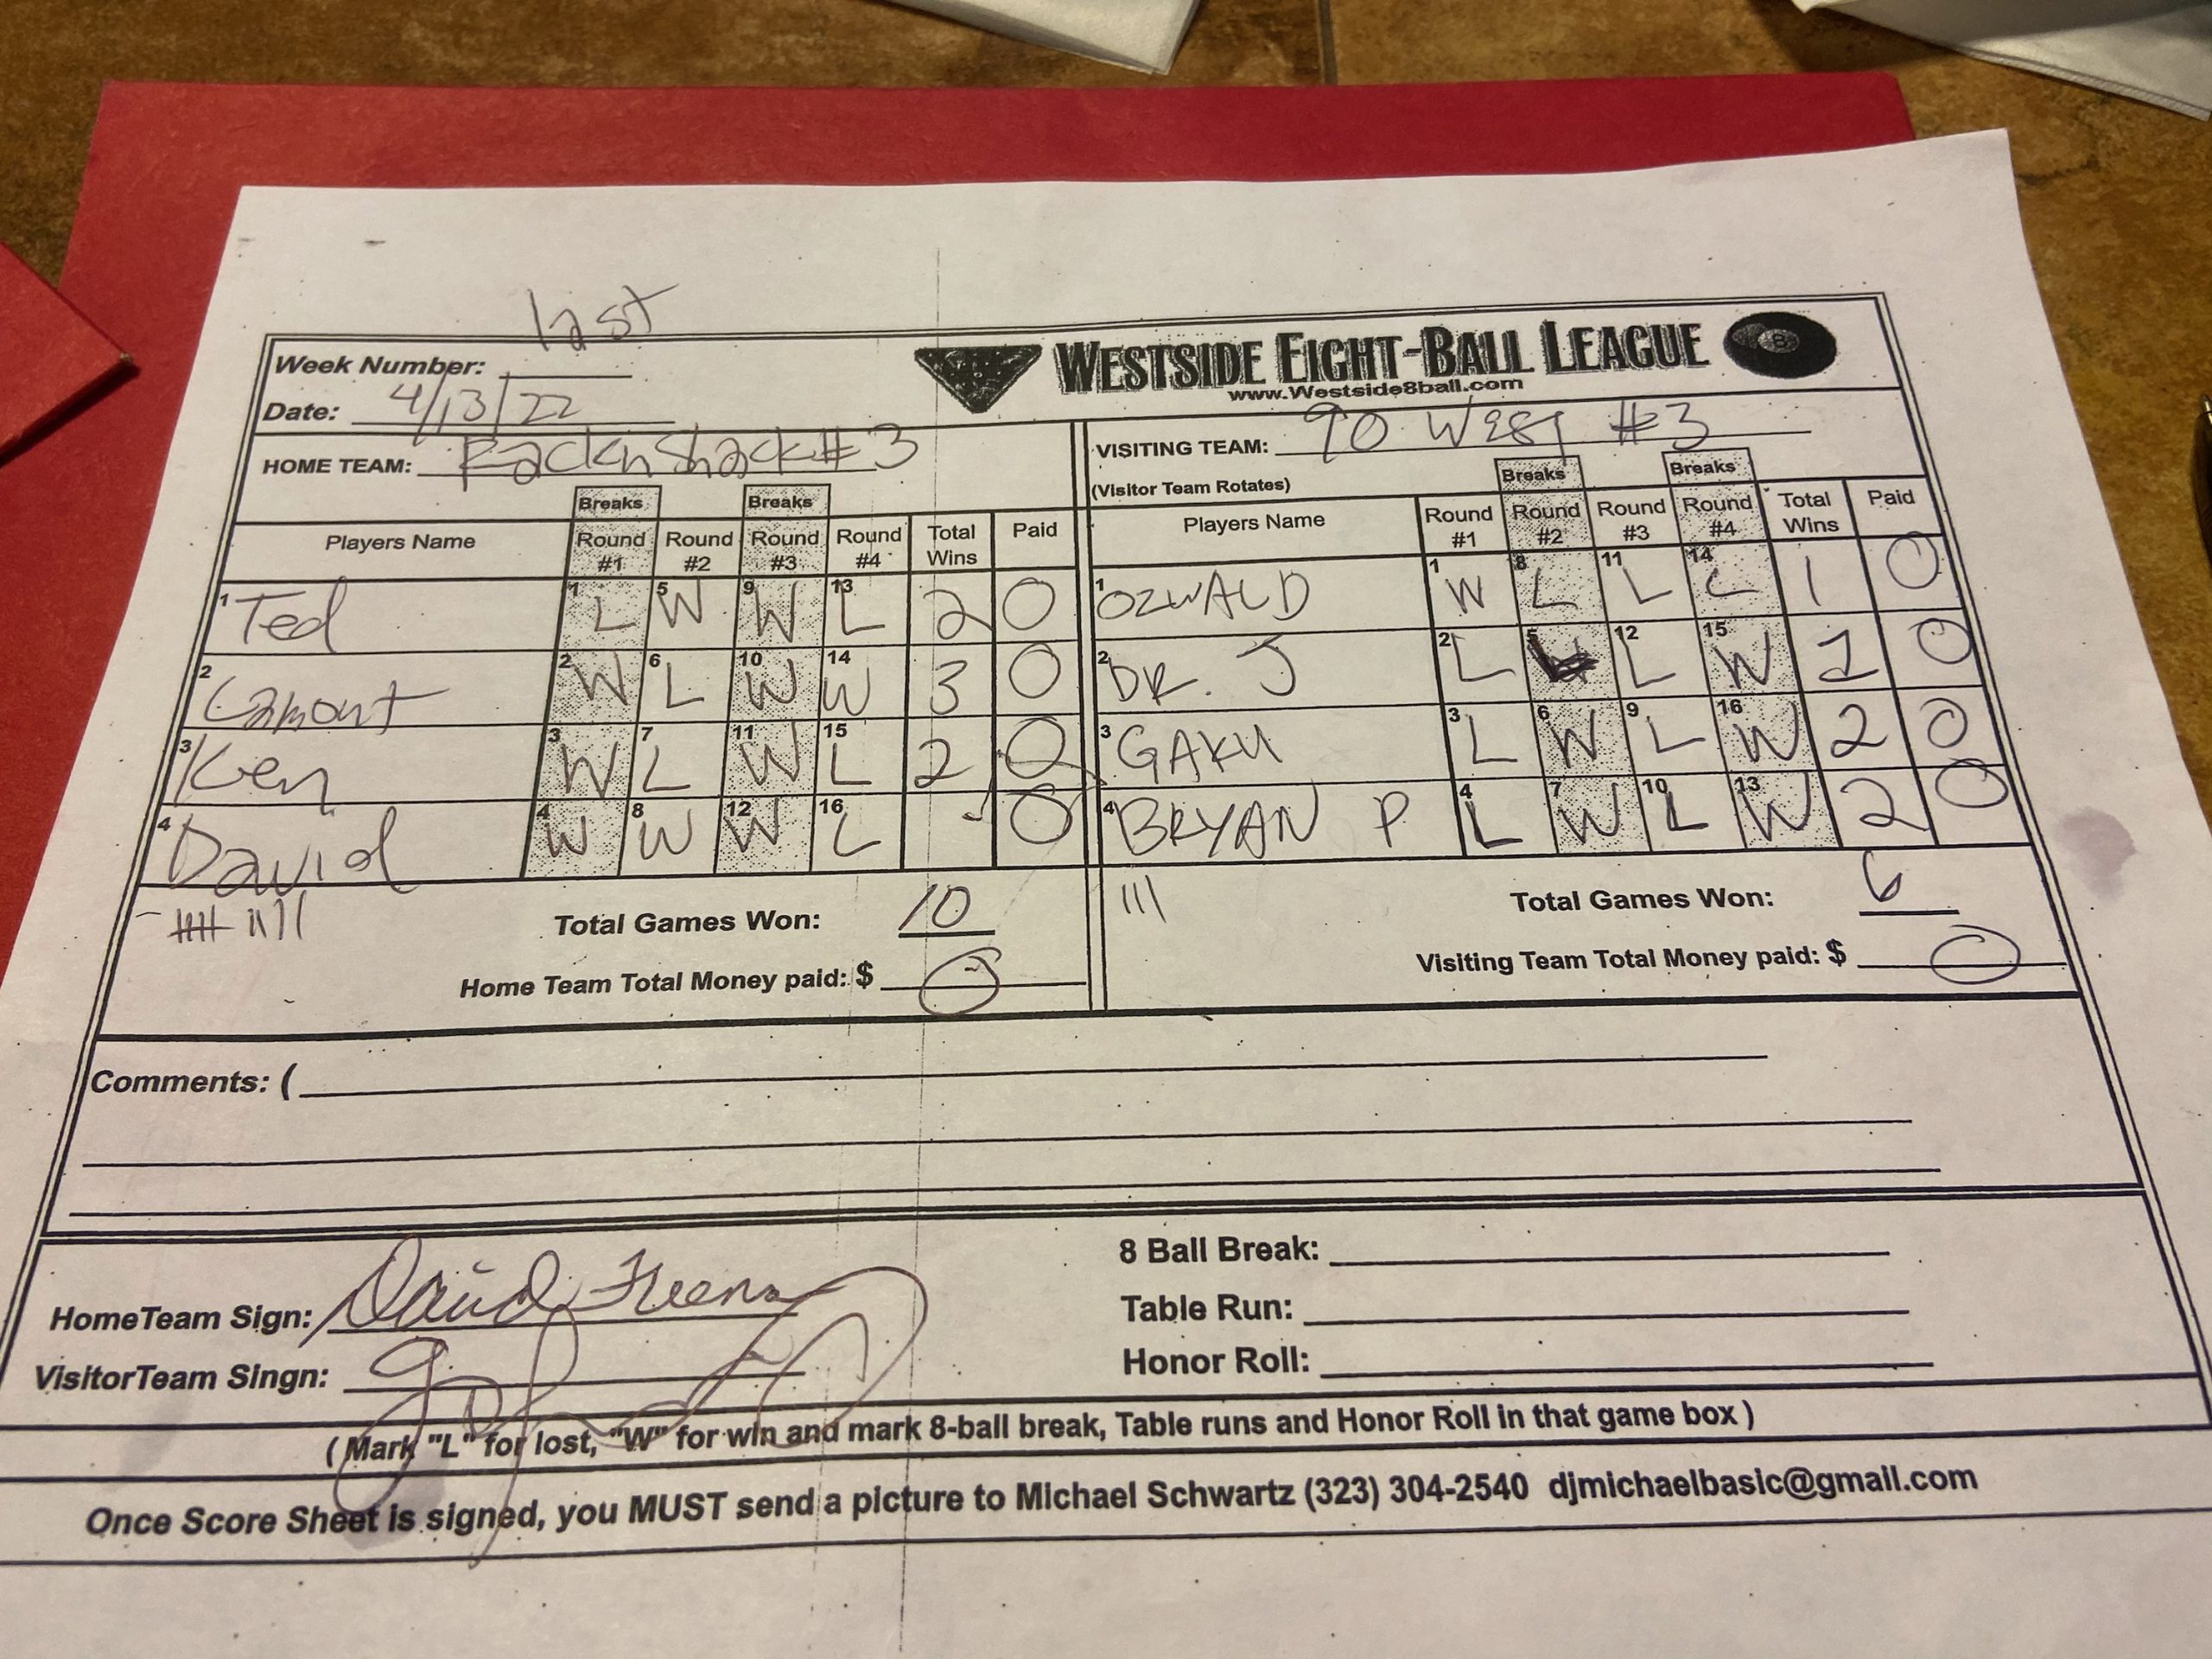 last
Week Number:
WESTSIDE EIGHT-BALL LEAGUE 8
www.Westside8ball.com
Date: 4/13/22
HOME TEAM: Rack n Shack #3
VISITING TEAM: 90 West #3
(Visitor Team Rotates)
Breaks Breaks Breaks Breaks
Players Name Round #1 Round #2 Round #3 Round #4 Total Wins Paid Players Name Round #1 Round #2 Round #3 Round #4 Total Wins Paid
1 Ted 1 L 5 W 9 W 13 L 2 0 1 OZWALD 1 W 8 L 11 L 14 L 1 0
2 Lamont 2 W 6 L 10 W 14 W 3 0 2 DR. J 2 L 5 12 L 15 W 1 0
3 Ken 3 W 7 L 11 W 15 L 2 0 3 GAKU 3 L 6 W 9 L 16 W 2 0
4 David 4 W 8 W 12 W 16 L 0 4 BRYAN P 4 L 7 W 10 L 13 W 2 0
Total Games Won: 10
Total Games Won: 6
Home Team Total Money paid: $ 0
Visiting Team Total Money paid: $ 0
Comments: (
8 Ball Break:
HomeTeam Sign: David
Table Run:
VisitorTeam Singn:
Honor Roll:
( Mark "L" for lost, "W" for win and mark 8-ball break, Table runs and Honor Roll in that game box )
Once Score Sheet is signed, you MUST send a picture to Michael Schwartz (323) 304-2540 djmichaelbasic@gmail.com